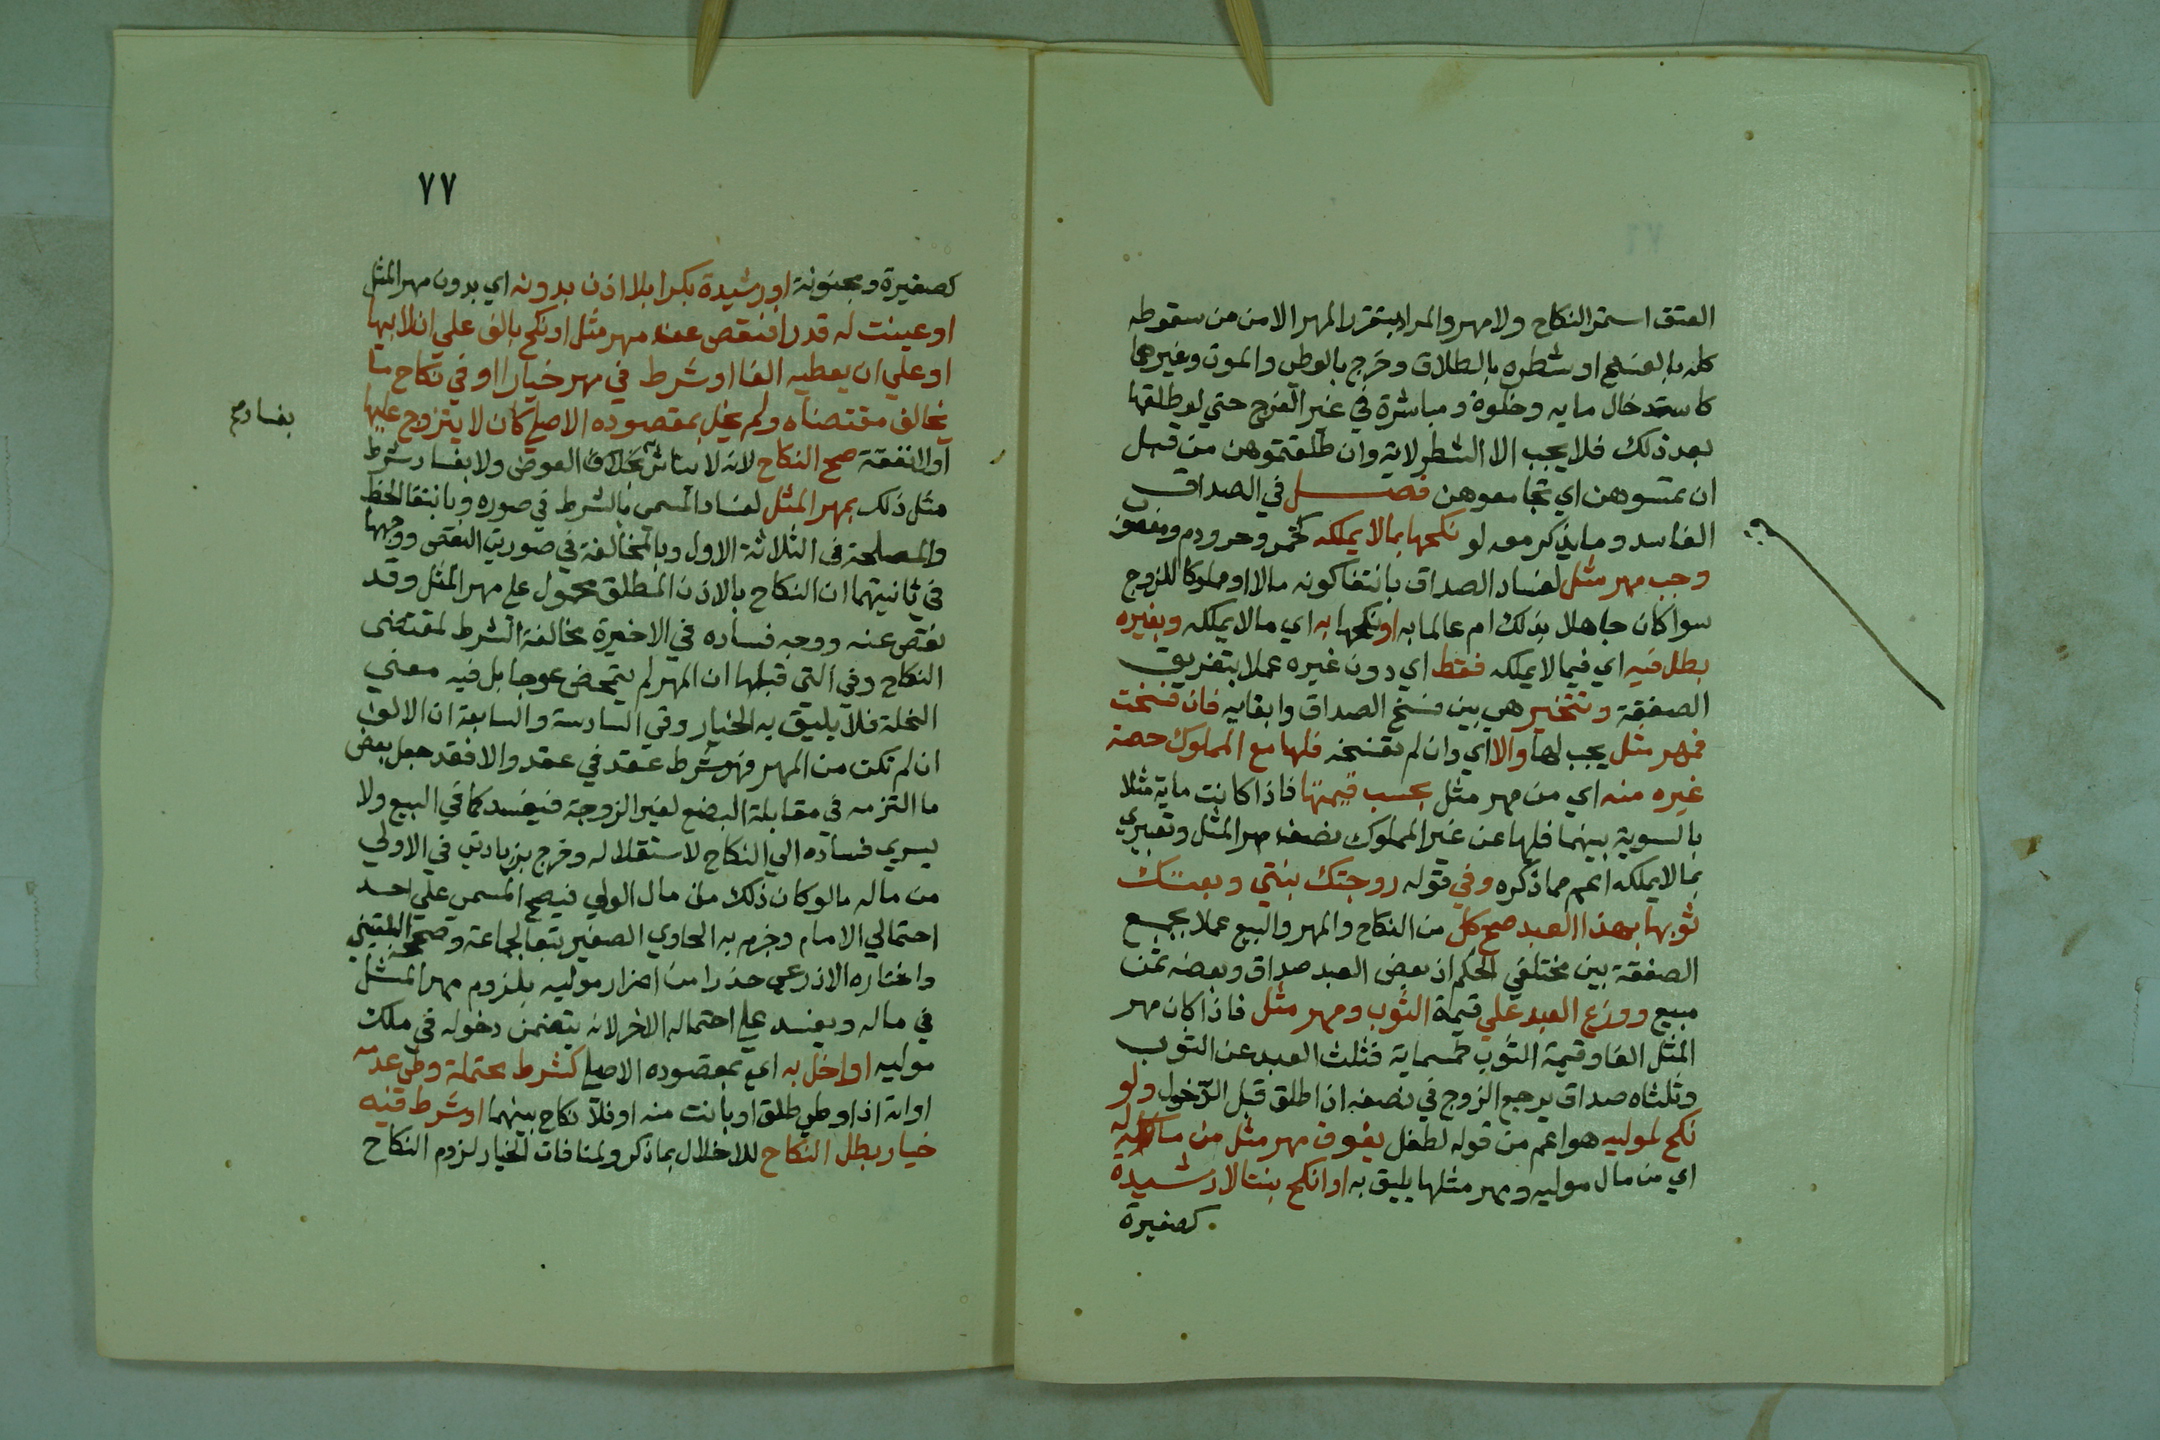 العتق استمر النكاح ولا مهر والمراد بتقرر المهر الامن من سقوطه
كله بالفسخ او شطره بالطلاق وخرج بالوطي والموت وغيرهما
كاستدخال مايه وخلوة ومباشرة في غير الفرج حتي لو طلقها
بعد ذلك فلا يجب الا الشطر لاية وان طلقتموهن من قبل
ان تمسوهن اي تجامعوهن فصل في الصداق
الفاسد وما يذكر معه لو نكحها بما لا يملكه كخمر وحر ودم ومغصوب
وجب مهر مثل لفساد الصداق بانتفا كونه مالا او مملوكا للزوج
سوا كان جاهلا بذلك ام عالما به او نكحها به اي ما لا يملكه وبغيره
بطل فيه اي فيما لا يملكه فقط اي دون غيره عملا بتفريق
الصفقة وتتخير هي بين فسخ الصداق وابقايه فان فسخت
فمهر مثل يجب لها والا اي وان لم تفسخه فلها مع المملوك حصة
غيره منه اي من مهر مثل بحسب قيمتها فاذا كانت ماية مثلا
بالسوية بينهما فلها عن غير المملوك نصف مهر المثل وتعبيري
بما لا يملكه اعم مما ذكره وفي قوله زوجتك بنتي وبعتك
ثوبها بهذا العبد صح كل من النكاح والمهر والبيع عملا بجمع
الصفقة بين مختلفي الحكم اذ بعض العبد صداق وبعضه ثمن
مبيع ووزع العبد علي قيمة الثوب ومهر مثل فاذا كان مهر
المثل الفا وقيمة الثوب خمسماية فثلث العبد عن الثوب
وثلثاه صداق يرجع الزوج في نصفه اذا طلق قبل الدخول ولو
نكح لموليه هو اعم من قوله لطفل بفوق مهر مثل من ماله
اي من مال موليه ومهر مثلها يليق به او انكح بنتا لا رشيدة
كصغيرة
٧٧
كصغيرة ومجنونة او رشيدة بكرا بلا اذن بدونه اي بدون مهر المثل
او عينت له قدرا فنقص عنه مهر مثل او نكح بالف علي ان لابيها
او علي ان يعطيه الفا او شرط في مهر خيارا او في نكاح ما
يخالف مقتضاه ولم يخل بمقصوده الاصلي كان لا يتزوج عليها
او لا نفقة صح النكاح لانه لا يتاثر بخلاف العوض ولا بفساد شرط
مثل ذلك بمهر المثل لفساد المسمي بالشرط في صوره وبانتفا الحظ
والمصلحة في الثلاثة الاول وبالمخالفة في صورتي النقص ووجهها
في ثانيتهما ان النكاح بالاذن المطلق محمول علي مهر المثل وقد
نقص عنه ووجه فساده في الاخيرة مخالفة الشرط لمقتضي
النكاح وفي التي قبلها ان المهر لم يتمحض عوضا بل فيه معني
النحلة فلا يليق به الخيار وفي السادسة والسابعة ان الالف
ان لم تكن من المهر فهو شرط عقد في عقد والا فقد جعل بعض
ما التزمه في مقابلة البضع لغير الزوجة فيفسد كما في البيع ولا
يسري فساده الي النكاح لاستقلاله وخرج بزيادتي في الاولي
من ماله ما لو كان ذلك من مال الولي فيصح المسمي علي احد
احتمالي الامام وجزم به الحاوي الصغير تبعا لجماعة وصححه البلقيني
واختاره الاذرعي حذرا من اضرار موليه بلزوم مهر المثل
في ماله ويفسد علي احتماله الاخر لانه يتضمن دخوله في ملك
موليه او اخل به اي بمقصوده الاصلي كشرط محتملة وطي عدمه
او انه اذا وطي طلق او بانت منه او فلا نكاح بينهما او شرط فيه
خيار بطل النكاح للاخلال بما ذكر ولمنافات الخيار لزوم النكاح
بفساده